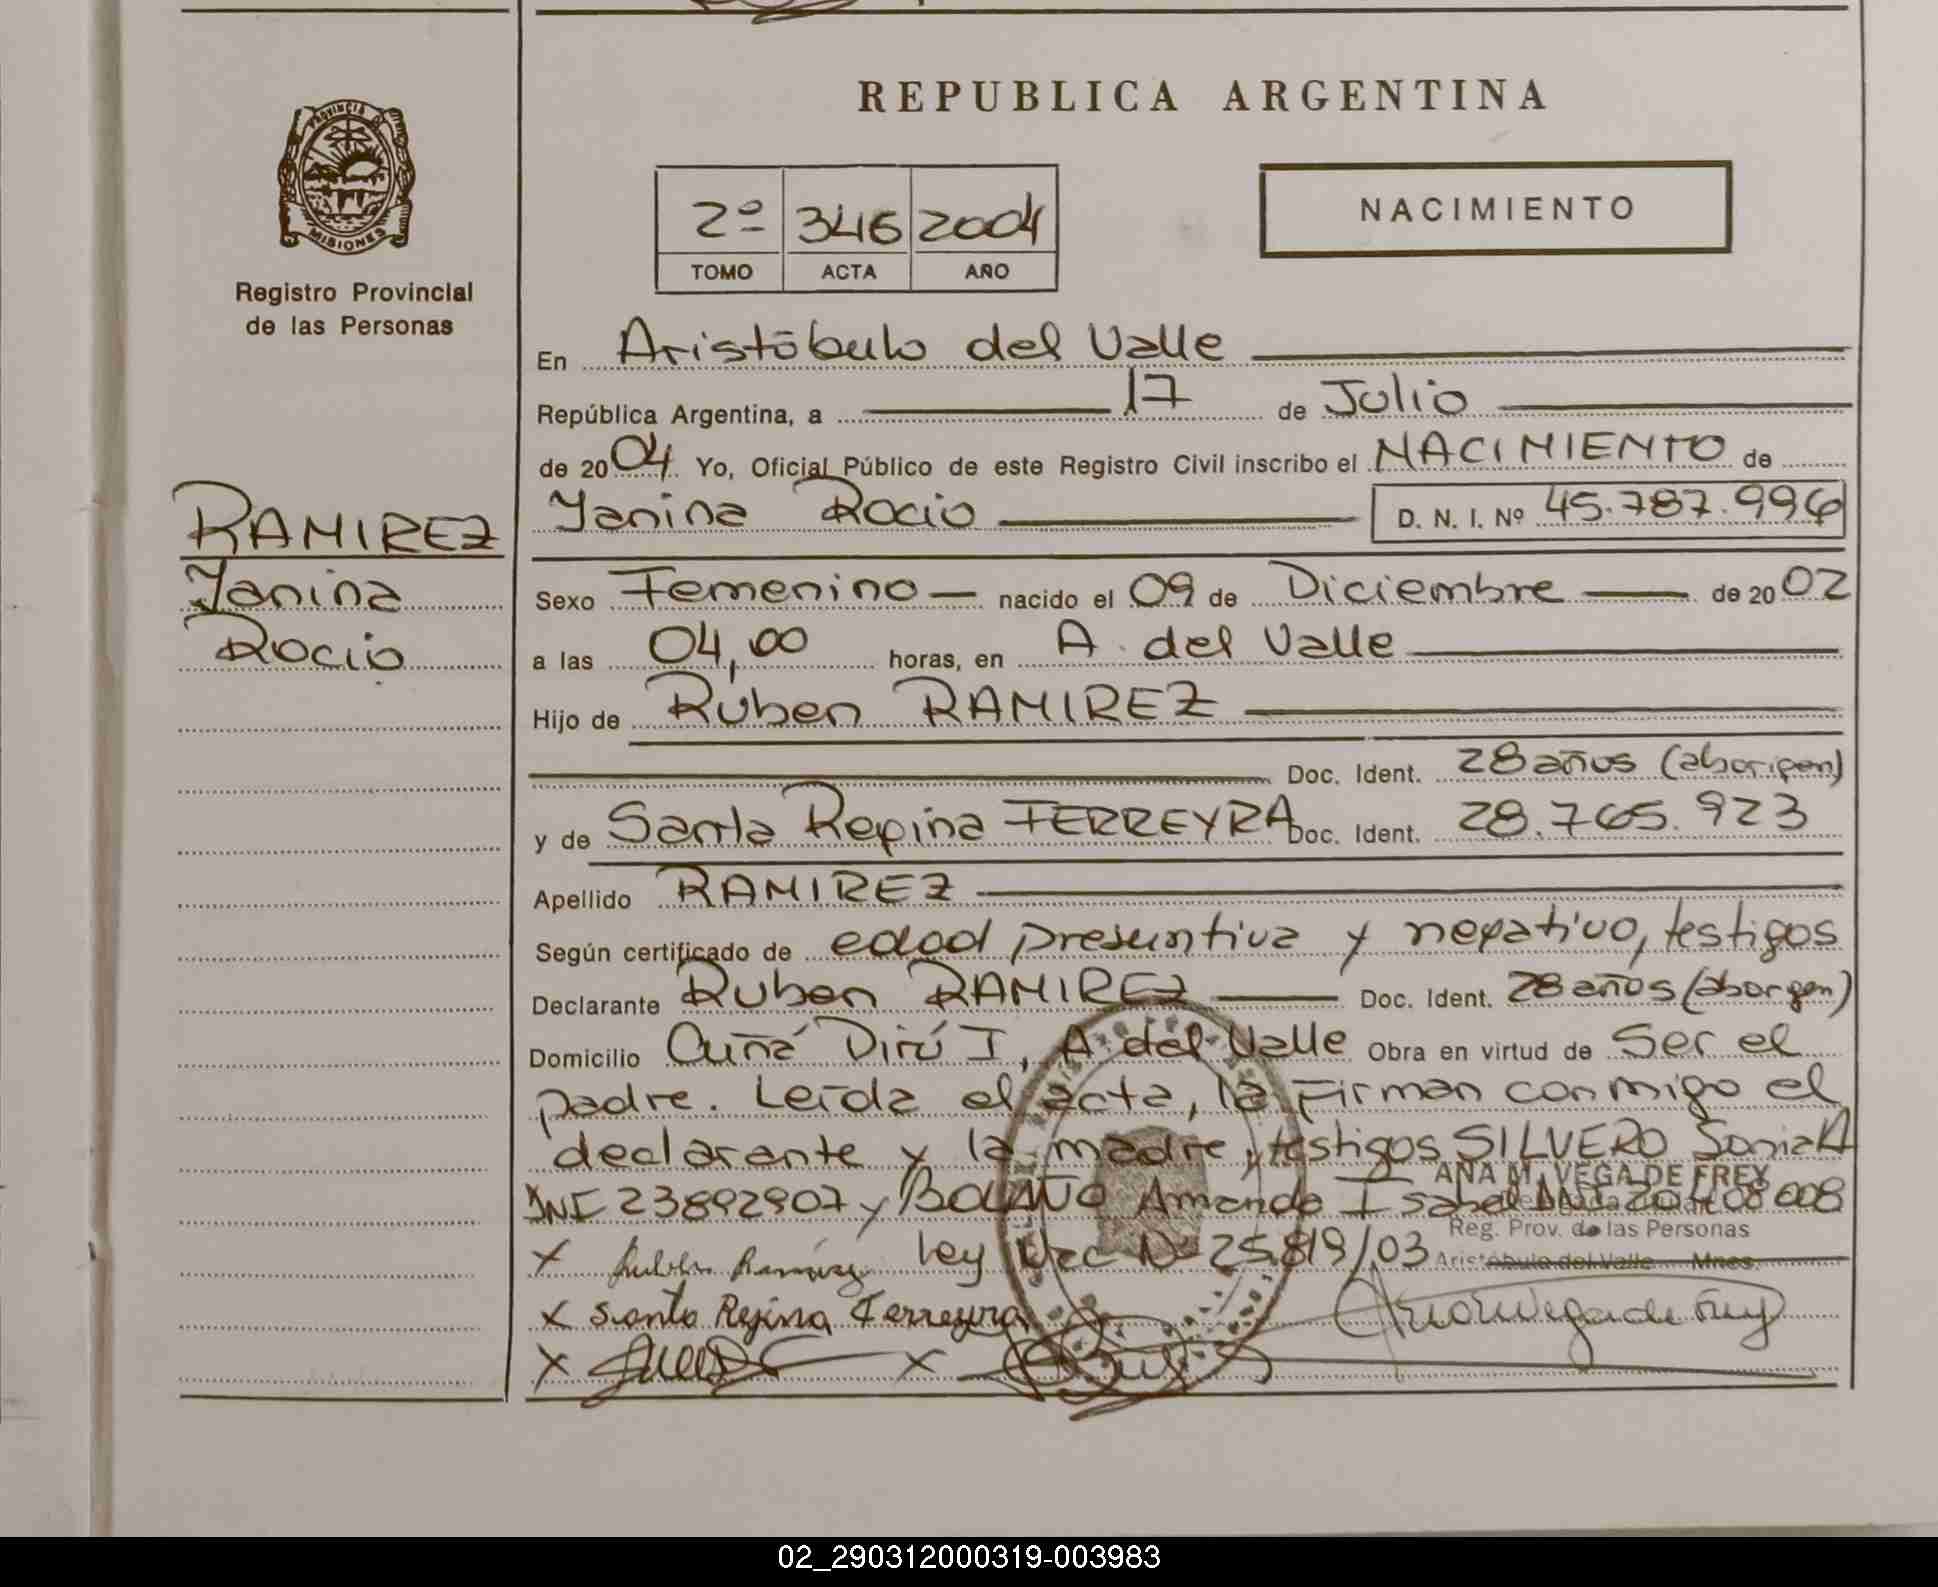 REPUBLICA ARGENTINA
PROVINCIA DE
MISIONES
Registro Provincial
de las Personas
NACIMIENTO
2º 346 2004
TOMO ACTA AÑO
En Aristóbulo del Valle
República Argentina, a 17 de Julio
de 2004 Yo, Oficial Público de este Registro Civil inscribo el NACIMIENTO de
Yanina Rocio D. N. I. Nº 45.787.996
RAMIREZ
Yanina
Rocio
Sexo Femenino nacido el 09 de Diciembre de 2002
a las 04,00 horas, en A. del Valle
Hijo de Rúben RAMIREZ
Doc. Ident. 28 años (aborigen)
y de Santa Regina FERREYRA Doc. Ident. 28.765.923
Apellido RAMIREZ
Según certificado de edad presuntiva y negativo, testigos
Declarante Ruben RAMIREZ Doc. Ident. 28 años (aborgen)
Domicilio Cuñá Pirú I, A. del Valle Obra en virtud de Ser el
padre. Leída el acta, la Firman conmigo el
declarante y la madre, testigos SILVERO Sonia A
DNI 23892907 y BOLAÑO Amanda Isabel DNI 20408008
ANA M. VEGA DE FREY
Reg. Prov. de las Personas
Aristóbulo del Valle Mnes.
x Ramirez Ley Nac Nº 25.819/03
x Santa Regina Ferreyra
x x
02_290312000319-003983